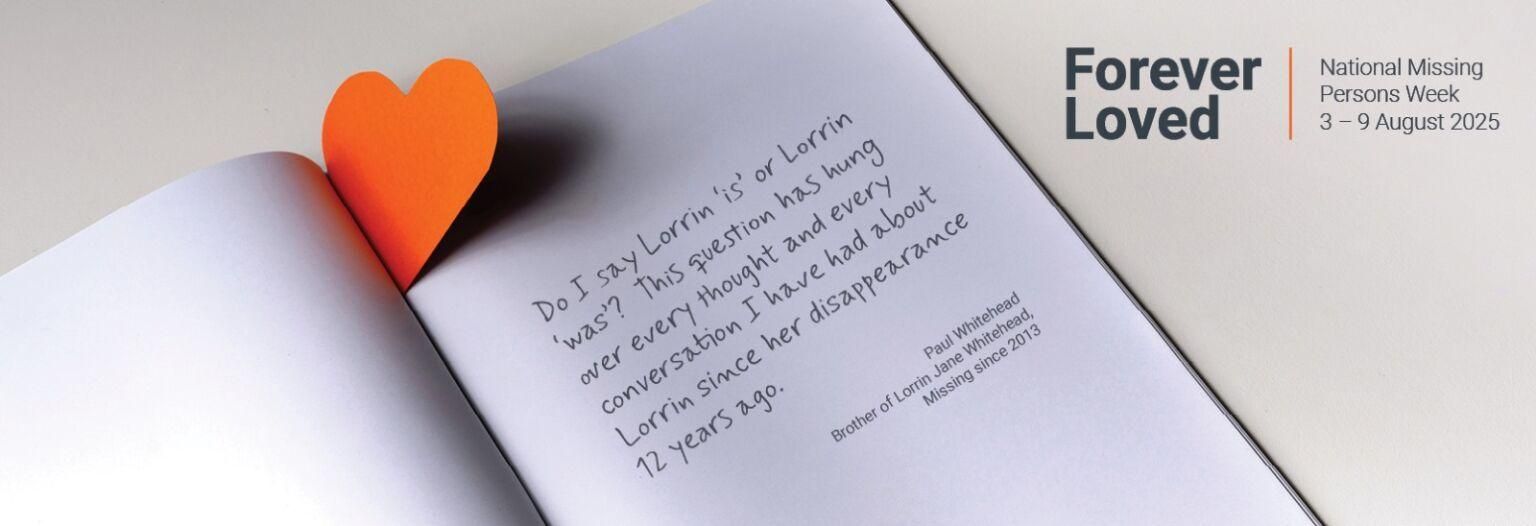 Do I say Lorrin 'is' or Lorrin
'was'? This question has hung
over every thought and every
conversation I have had about
Lorrin since her disappearance
12 years ago.
Paul Whitehead
Brother of Lorrin Jane Whitehead,
Missing since 2013
Forever
Loved
National Missing
Persons Week
3 – 9 August 2025